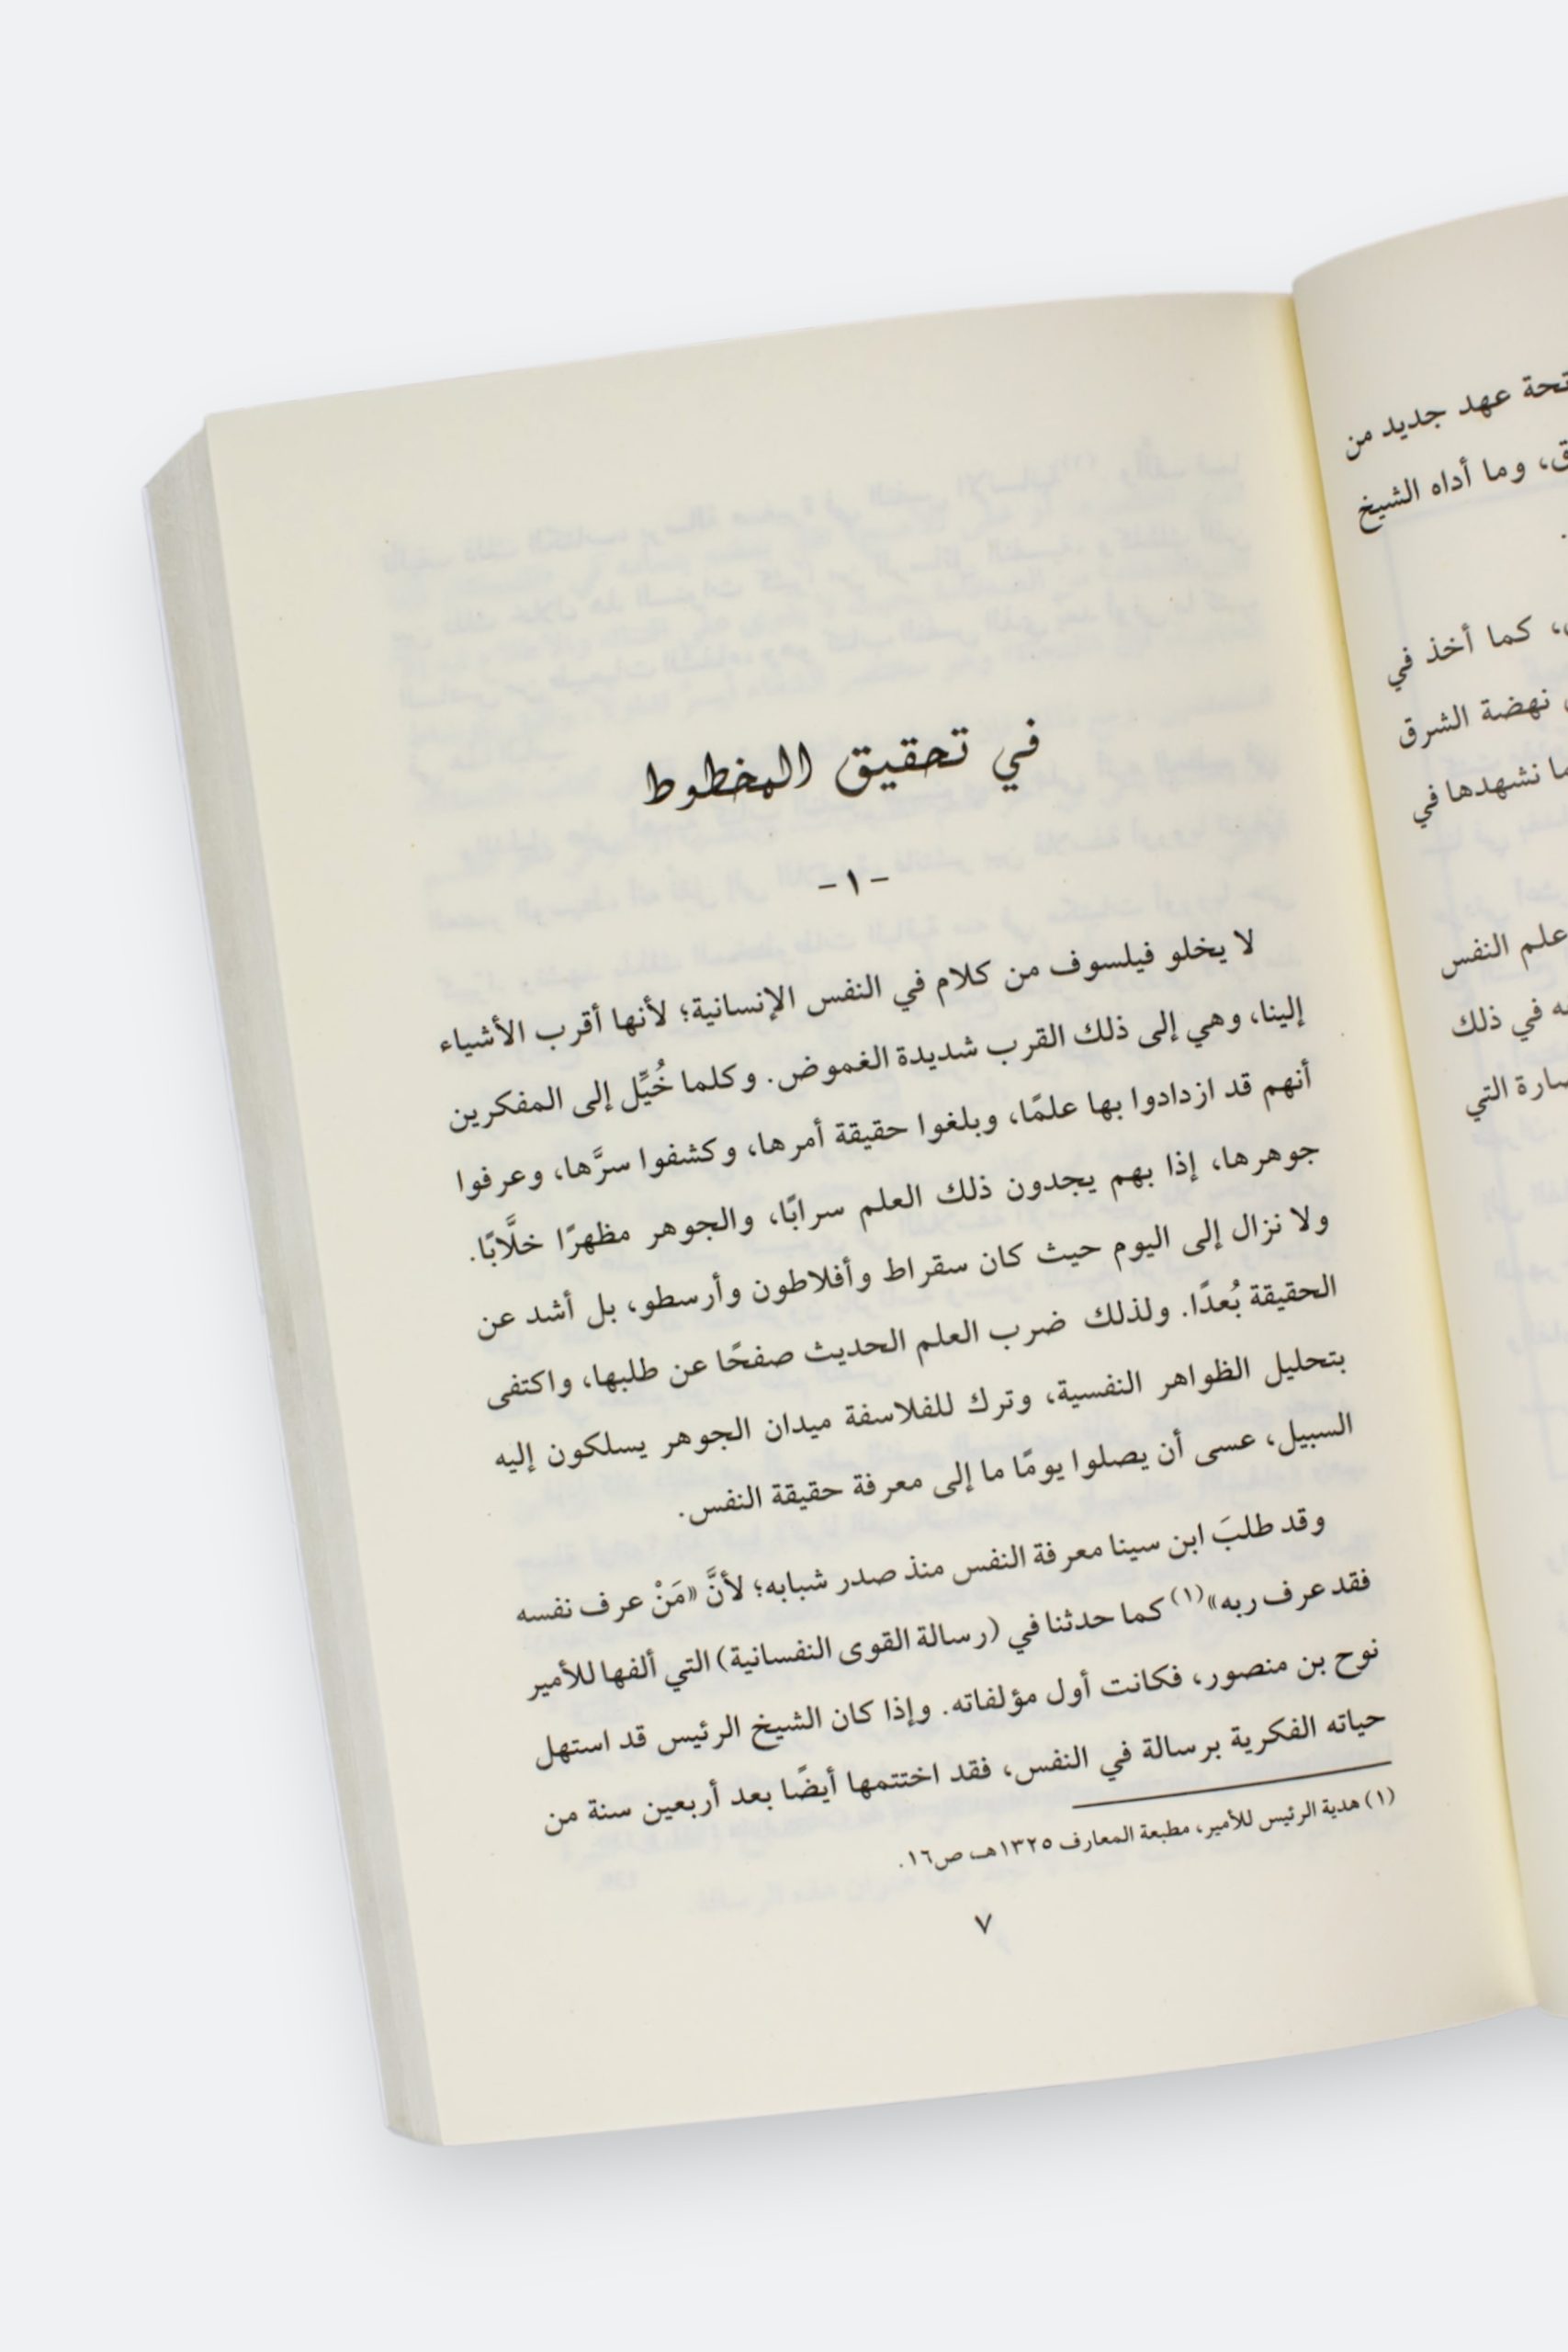 تحة عهد جديد من
ق، وما أداه الشيخ
، كما أخذ في
نهضة الشرق
ما نشهدها في
علم النفس
ه في ذلك
صارة التي
في تحقيق المخطوط
- ١ -
لا يخلو فيلسوف من كلام في النفس الإنسانية؛ لأنها أقرب الأشياء
إلينا، وهي إلى ذلك القرب شديدة الغموض. وكلما خُيِّل إلى المفكرين
أنهم قد ازدادوا بها علمًا، وبلغوا حقيقة أمرها، وكشفوا سرَّها، وعرفوا
جوهرها، إذا بهم يجدون ذلك العلم سرابًا، والجوهر مظهرًا خلَّابًا.
ولا نزال إلى اليوم حيث كان سقراط وأفلاطون وأرسطو، بل أشد عن
الحقيقة بُعدًا. ولذلك ضرب العلم الحديث صفحًا عن طلبها، واكتفى
بتحليل الظواهر النفسية، وترك للفلاسفة ميدان الجوهر يسلكون إليه
السبيل، عسى أن يصلوا يومًا ما إلى معرفة حقيقة النفس.
وقد طلبَ ابن سينا معرفة النفس منذ صدر شبابه؛ لأنَّ «مَنْ عرف نفسه
فقد عرف ربه»(١) كما حدثنا في (رسالة القوى النفسانية) التي ألفها للأمير
نوح بن منصور، فكانت أول مؤلفاته. وإذا كان الشيخ الرئيس قد استهل
حياته الفكرية برسالة في النفس، فقد اختتمها أيضًا بعد أربعين سنة من
(١) هدية الرئيس للأمير، مطبعة المعارف ١٣٢٥هـ، ص١٦.
٧